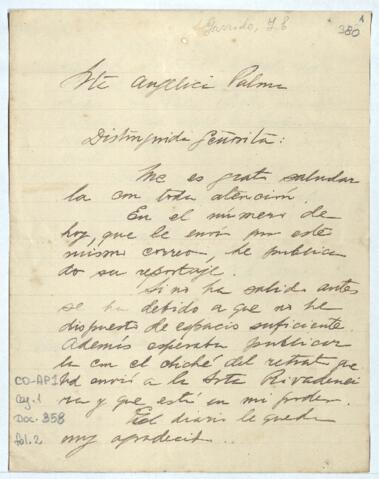 Garrido, J E
380
Srta Angelica Palma
Distinguida Señorita:
Me es grato saludar
la con toda atención.
En el número de
hoy, que le envío por este
mismo correo, he publica
do su reportaje.
Si no ha salido antes
se ha debido a que no he
dispuesto de espacio suficiente.
Además esperaba publicar
la con el cliché del retrato que
Ud envió a la Srta Rivadenei
ra y que está en mi poder.
El diario le queda
muy agradecido..
CO-AP1
Cj. 1
Doc. 358
fol. 2